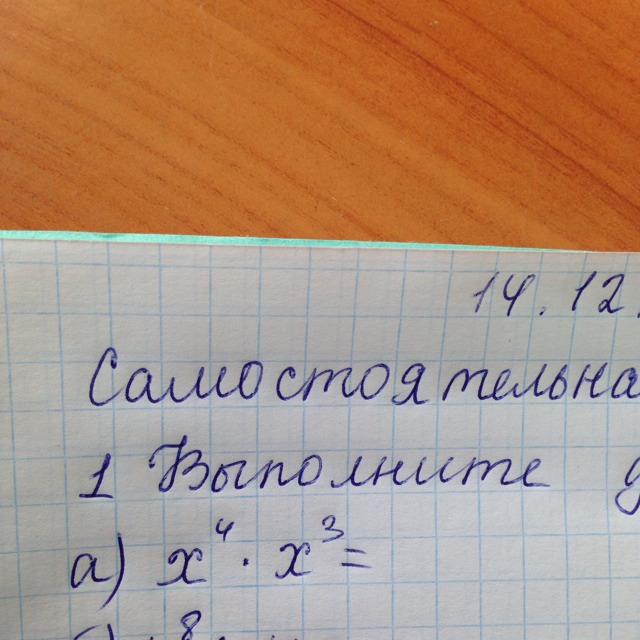 14.12.
Самостоятельна
1 Выполните
а) x⁴ · x³ =